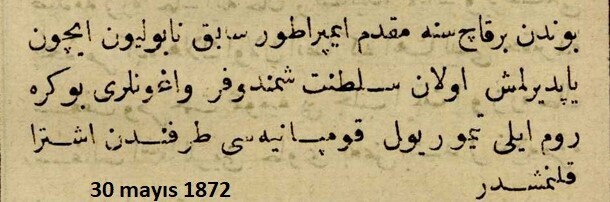 بوندن برقاچ سنه مقدم ایمپراطور سابق ناپولیون ایچون
یاپدیرلمش اولان سلطنت شمندوفر واغونلری بوکره
روم ایلی تیمور یول قومپانیه سی طرفندن اشترا
قلنمشدر
30 mayıs 1872